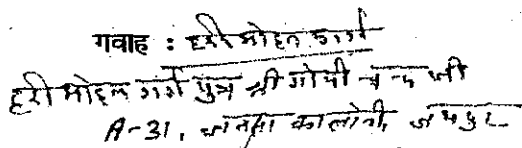 गवाह : हरी मोहन गर्ग
हरी मोहन गर्ग पुत्र श्री गोपी चन्द जी
A-31, जनता कालोनी, जयपुर